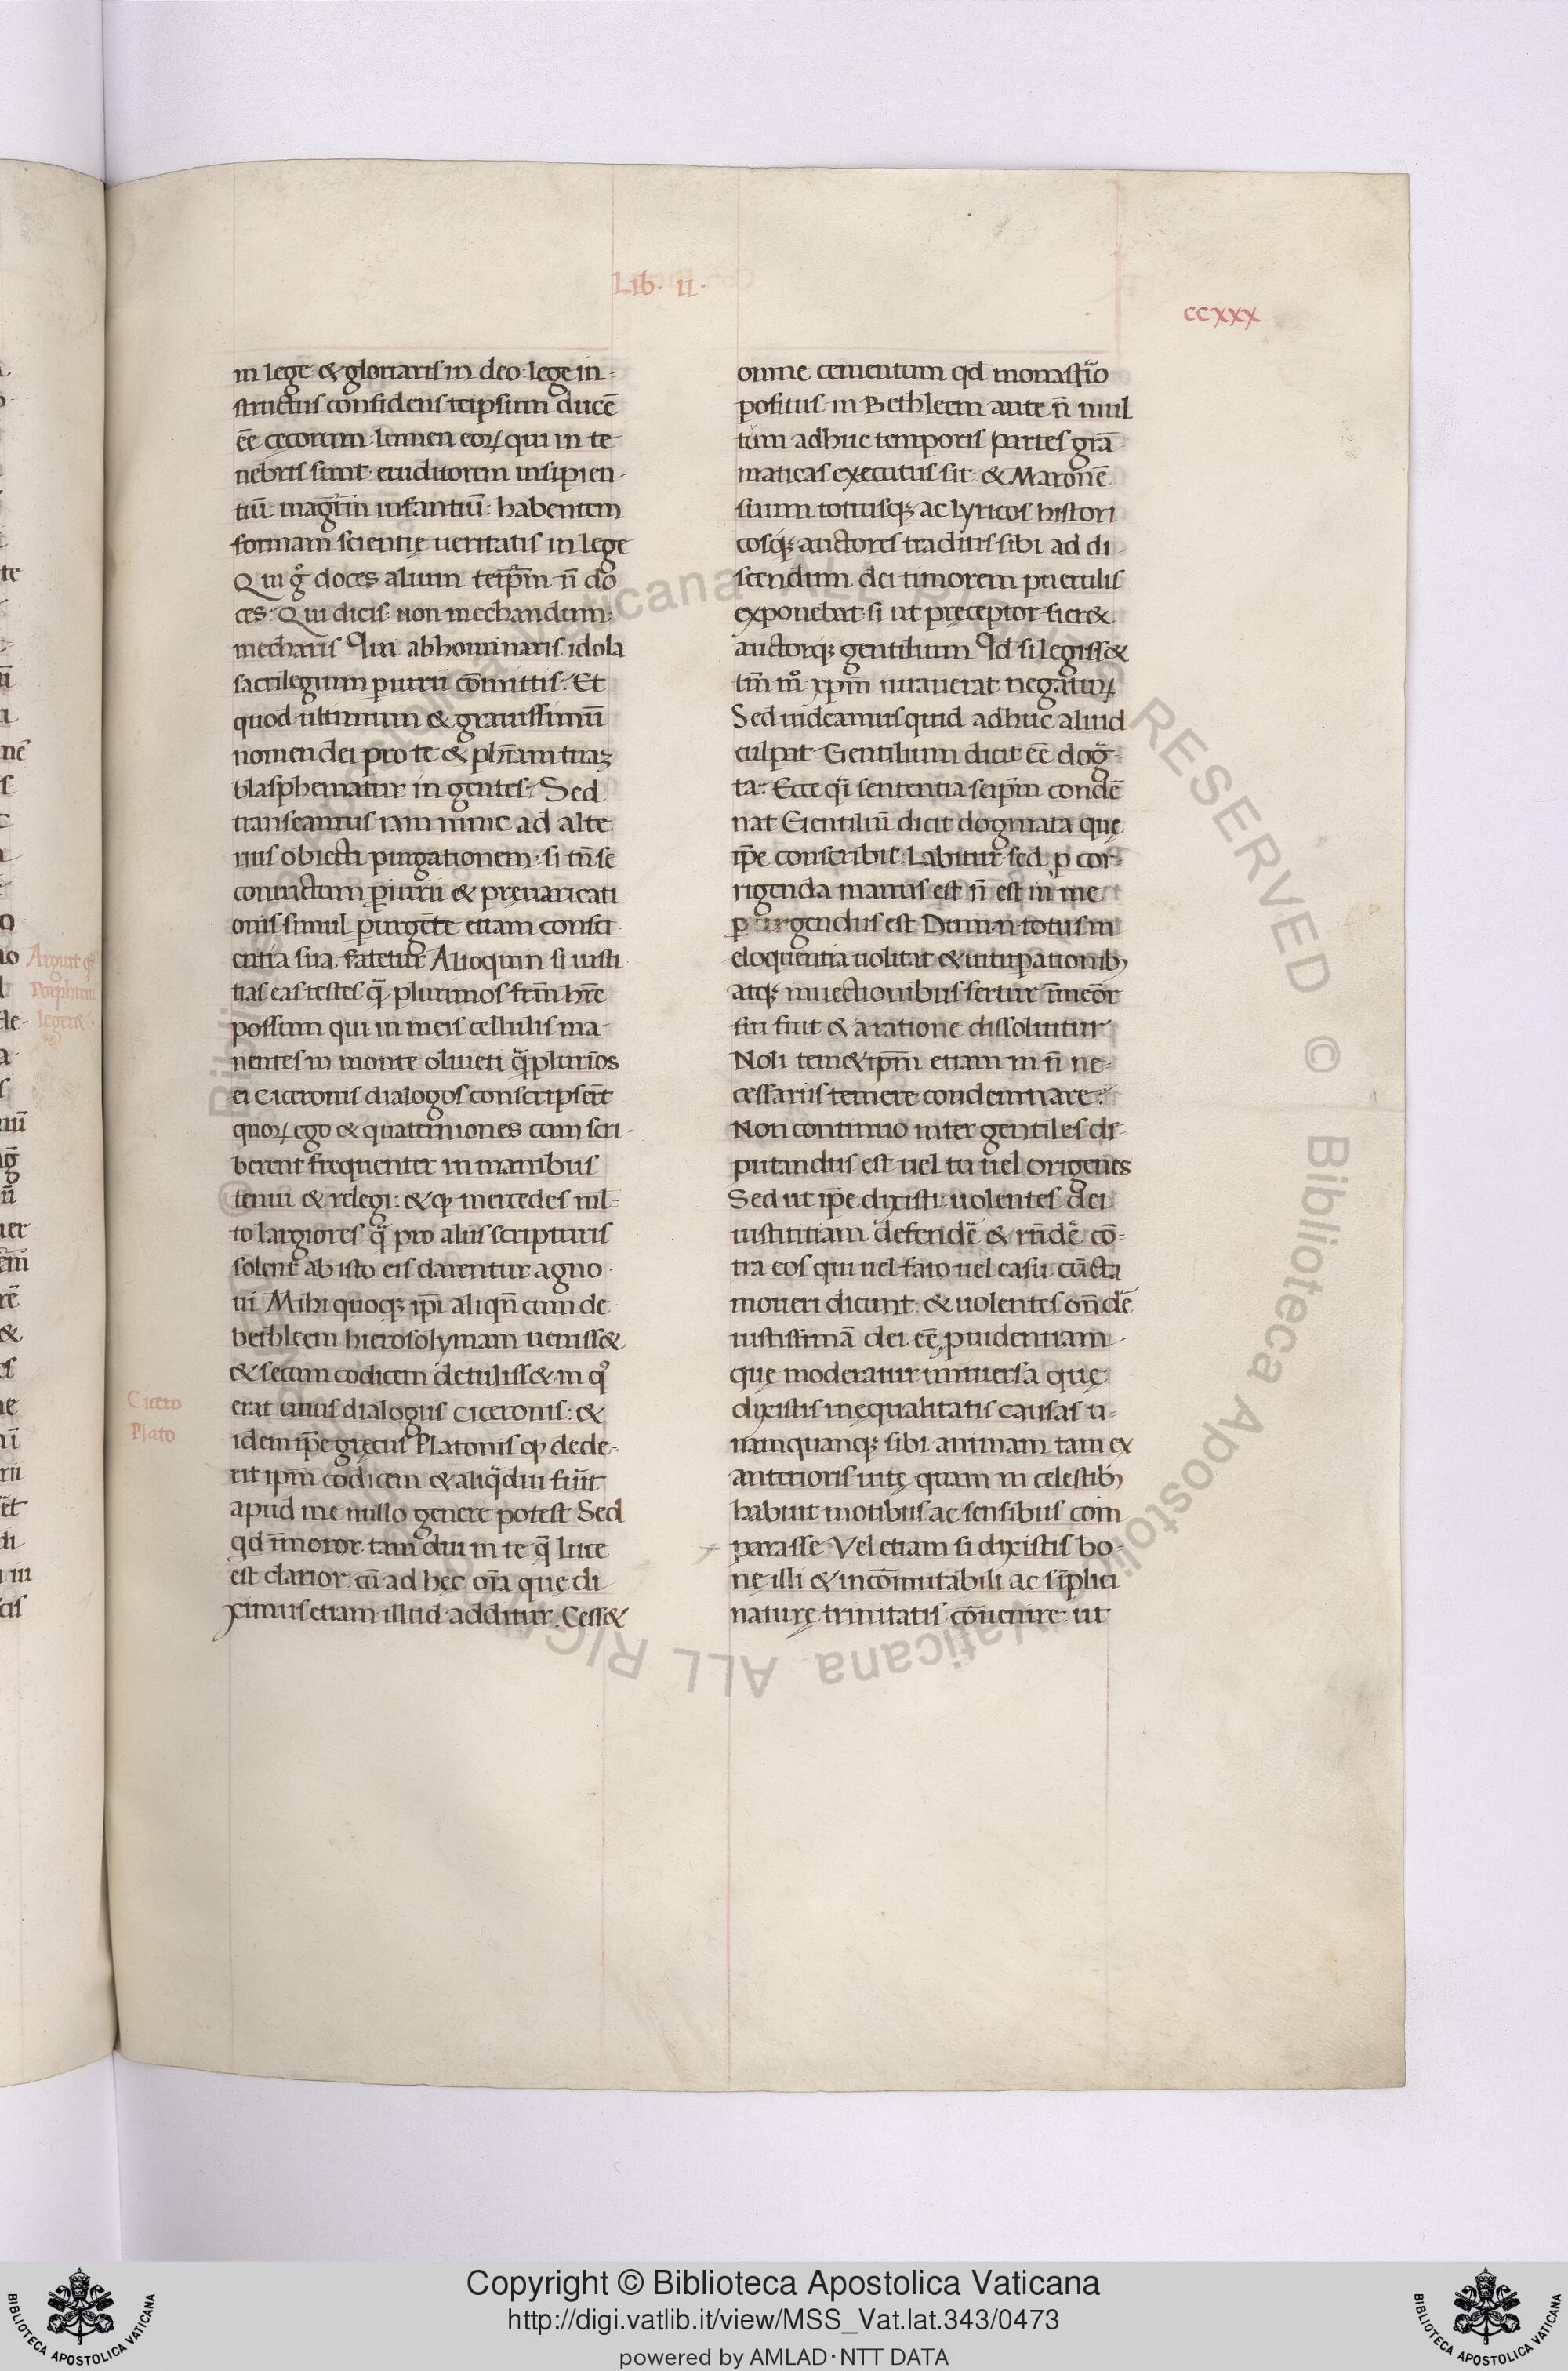 Lib. II.
CCXXX
in lege & gloriaris in deo lege in-
structus confidens teipsum ducē
eē cecorum lumen eoꝝ qui in te
nebris sunt eruditorem insipien-
tiū magr̄m infantiū habentem
formam scientię ueritatis in lege
Qui g̊ doces alium teip̄m n̄ do
ces Qui dicis Non mechandum
mecharis Qui abhominaris idola
sacrilegium piurii cōmittis Et
quod ultimum & grauissimū
nomen dei pro te & phīam tuaȝ
blasphematur in gentes Sed
transeamus iam nunc ad alte
rius obiecti purgationem si tn̄ se
conuictum piurii & pręuaricati
onis simul purgēte etiam consci
entia sua fatetur Alioquin si iusti
tias eas testes q̄ plurimos frm̄ hr̄e
possum qui in meis cellulis ma
nentes in monte oliueti q̄plurīos
ei Ciceronis dialogos conscripsert̄
quoꝝ ego & quaterniones cum scri
berent frequenter in manibus
tenui & relegi & qꝫ mercedes ml
to largiores q̄ pro aliis scripturis
solent ab isto eis darentur agno
ui Mihi quoqꝫ ip̄i aliqn̄ cum de
bethleem hierosolymam ueniss&
& secum codicem detuliss& in q̊
erat unus dialogus Ciceronis &
idem ip̄e gręcus Platonis qꝫ dede-
rit ipm̄ codicem & aliq̄diu fuīt
apud me nullo genere potest Sed
qd īmoror tam diu in re q̄ luce
est clarior cū ad hęc om̄a que di
ximus etiam illud additur Cess&
omne cementum qd monastīo
positus in Bethleem ante n̄ mul
tum adhuc temporis partes grā
maticas executus sit & Maronē
suum totiusqꝫ ac lyricos histori
cosqꝫ auctores traditis sibi ad di
scendum dei timorem puerulis
exponebat si ut pręceptor fier&
auctorqꝫ gentilium Id si legiss&
tm̄ m̊ xpm̄ iurauerat negatuꝝ
Sed uideamus quid adhuc aliud
culpat Gentilium dicit eē dog
ta Ecce q̄ sententia seipm̄ condē
nat Gentiliū dicit dogmata quę
ip̄e conscribis Labitur sed p cor
rigenda manus est n̄ est in me
p urgendus est Dum n totus in
eloquentia uolitat & uitupationibꝫ
atqꝫ inuectionibus fertur īmeōr
sui fuit & a ratione dissoluitur
Noli tem&ipm̄ etiam in n̄ ne-
cessariis temere condemnare
Non continuo inter gentiles dis-
putandus est uel tu uel Origenes
Sed ut ip̄e dixisti uolentes dei
iustitiam defendē & rn̄dē cō-
tra eos qui uel fato uel casu cūcta
moueri dicunt & uolentes on̄dē
iustissimā dei eē puidentiam
quę moderatur uniuersa quę
dixistis inęqualitatis causas u-
namquanqꝫ sibi animam tam ex
anterioris uitę quam in celestibꝫ
habuit motibus ac sensibus com
parasse Vel etiam si dixistis bo-
nę illi & incōmutabili ac sīplici
naturę trinitatis cōuenire ut
Arguit qꝫ
Porphirii
leger&
Cicero
Plato
Copyright © Biblioteca Apostolica Vaticana
http://digi.vatlib.it/view/MSS_Vat.lat.343/0473
powered by AMLAD·NTT DATA
BIBLIOTECA APOSTOLICA VATICANA
BIBLIOTECA APOSTOLICA VATICANA
© Biblioteca Apostolica Vaticana ALL RIGHTS RESERVED © Biblioteca Apostolica Vaticana ALL RIGHTS